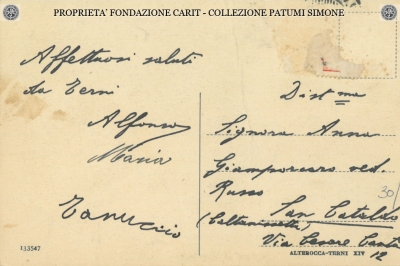 PROPRIETA' FONDAZIONE CARIT - COLLEZIONE PATUMI SIMONE
Affettuosi saluti
da Terni
Alfonso
Maria
Tanuccio
133547
Dist ma
Signora Anna
Giamporcaro ved.
Russo
San Cataldo
(Caltanissetta)
Via Cesare Cantù
12
30/
ALTEROCCA-TERNI XIV